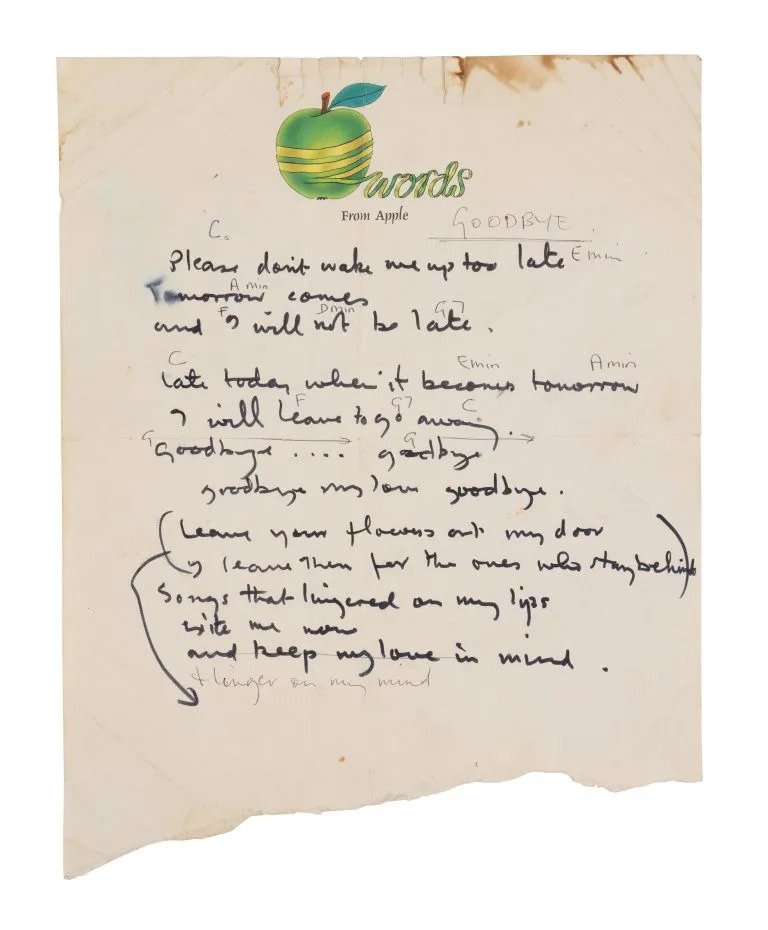 words
From Apple
GOODBYE.
C.
Please don't wake me up too late Emin
A min
Tomorrow comes
F Dmin G7
and I will not be late.
C Emin Amin
Late today when it becomes tomorrow
F G7 C
I will leave to go away.
G G
Goodbye .... goodbye
goodbye my love goodbye.
(Leave your flowers at my door
I leave them for the ones who stay behind)
Songs that lingered on my lips
me now
and keep my love in mind.
+ linger on my mind